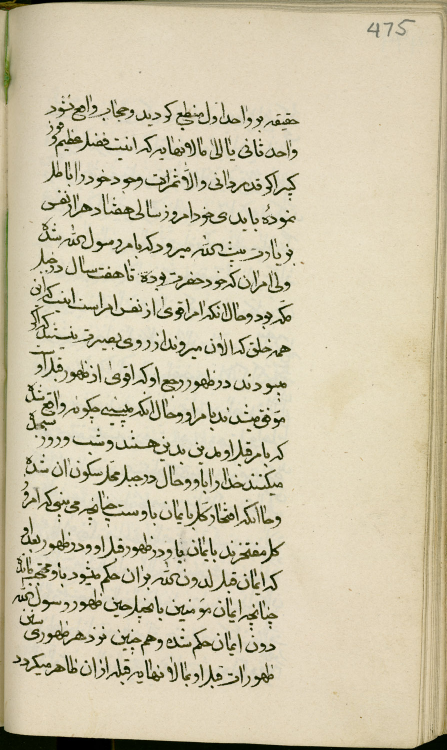 475
حقیقیه بر واحد اول منطبع گردید و حجاب واقع نشود
واحد ثانی یا الی مالا نهایه که اینست فضل عظیم و فوز
کبیر اگر قدر دانی والا ثمرات وجود خود را باطل
نموده بایدی خود امروز سالی هفتاد هزار نفس
بزیارت بیت الله میرود که بامر رسول الله شده
ولی امر ان که خود حضرت بوده تا هفت سال در جبل
مکه بود و حال انکه امر اقوی از نفس امر است اینست که این
همه خلق که الان میروند از روی بصیرت نیست که اگر
میبودند در ظهور رجع او که اقوی از ظهور قبل او
موقن میشدند بامر او و حال انکه میبینی چگونه واقع شده
که بامر قبل او مدین بدین هستند و شب و روز سجده
میکنند خدا را باو و حال در جبل محل سکون ان شده
و حال انکه افتخار کل بایمان باوست چنانچه می بینی که امروز
کل مفتخرند بایمان باو در ظهور قبل او و در ظهور بعد او
که ایمان قبل لدون الله بر ان حکم میشود باو محتجب مانده
چنانچه ایمان مؤمنین بانجیل حین ظهور رسول الله
دون ایمان حکم شده و هم چنین نزد هر ظهوری سنن
ظهورات قبل او بما لا نهایه قبل از ان ظاهر میگردد